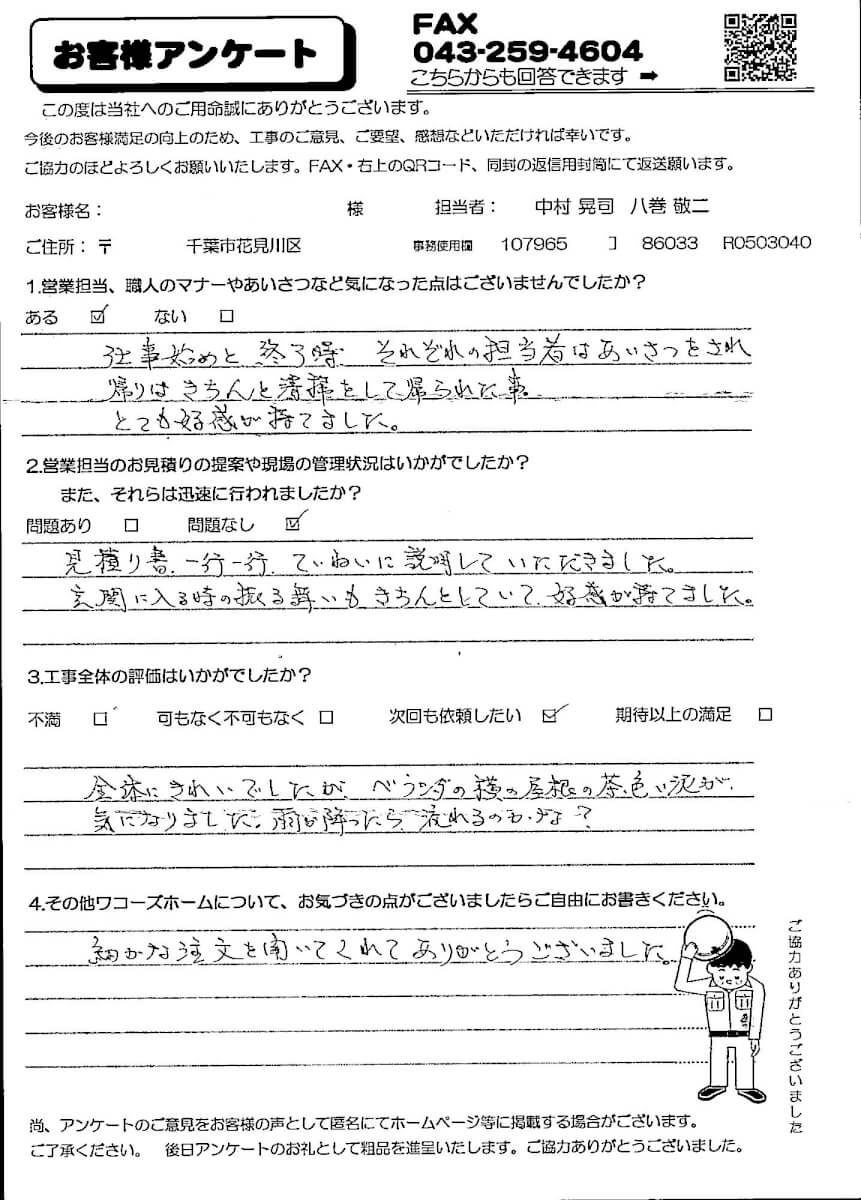 お客様アンケート
FAX
043-259-4604
こちらからも回答できます ➡
この度は当社へのご用命誠にありがとうございます。
今後のお客様満足の向上のため、工事のご意見、ご要望、感想などいただければ幸いです。
ご協力のほどよろしくお願いいたします。FAX・右上のQRコード、同封の返信用封筒にて返送願います。
お客様名： 様 担当者： 中村 晃司 八巻 敬二
ご住所：〒 千葉市花見川区 事務使用欄 107965 コ 86033 R0503040
1.営業担当、職人のマナーやあいさつなど気になった点はございませんでしたか？
ある ☑ ない □
仕事始めと 終了時 それぞれの担当者はあいさつをされ
帰りは きちんと清掃をして帰られた事。
とても好感が持てました。
2.営業担当のお見積りの提案や現場の管理状況はいかがでしたか？
また、それらは迅速に行われましたか？
問題あり □ 問題なし ☑
見積り書、一行一行、ていねいに説明していただきました。
玄関に入る時の振る舞いも きちんとしていて、好感が持てました。
3.工事全体の評価はいかがでしたか？
不満 □ 可もなく不可もなく □ 次回も依頼したい ☑ 期待以上の満足 □
全体にきれいでしたが、ベランダの横の屋根の茶色い泥が、
気になりました。雨が降ったら、流れるのかな？
4.その他ワコーズホームについて、お気づきの点がございましたらご自由にお書きください。
細かな注文を聞いてくれてありがとうございました。
ご協力ありがとうございました
尚、アンケートのご意見をお客様の声として匿名にてホームページ等に掲載する場合がございます。
ご了承ください。 後日アンケートのお礼として粗品を進呈いたします。ご協力ありがとうございました。